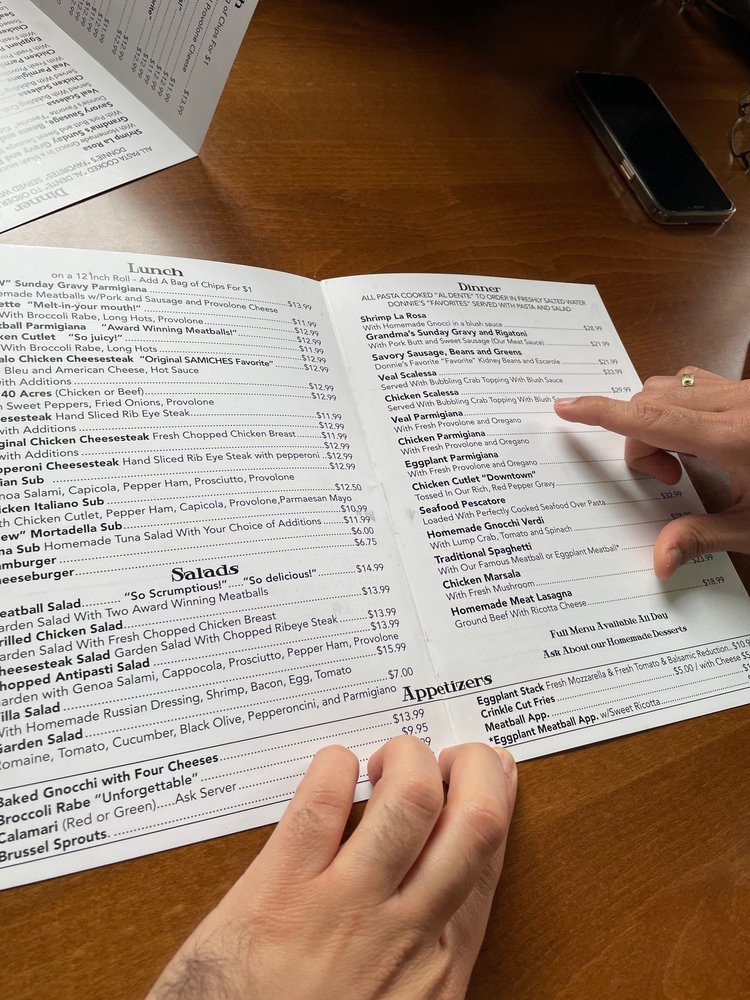 Lunch
on a 12 Inch Roll - Add A Bag of Chips For $1
Sunday Gravy Parmigiana
Meatballs w/Pork and Sausage and Provolone Cheese $13.99
"Melt-in-your mouth!"
With Broccoli Rabe, Long Hots, Provolone $11.99
Parmigiana "Award Winning Meatballs!" $12.99
Cutlet "So juicy!" $12.99
With Broccoli Rabe, Long Hots $11.99
Chicken Cheesesteak "Original SAMICHES Favorite" $12.99
Bleu and American Cheese, Hot Sauce $12.99
with Additions
40 Acres (Chicken or Beef) $12.99
Sweet Peppers, Fried Onions, Provolone $12.99
Hand Sliced Rib Eye Steak
with Additions $11.99
Chicken Cheesesteak Fresh Chopped Chicken Breast $12.99
with Additions $11.99
Cheesesteak Hand Sliced Rib Eye Steak with pepperoni $12.99
Sub $12.99
Salami, Capicola, Pepper Ham, Prosciutto, Provolone
Italiano Sub $12.50
Chicken Cutlet, Pepper Ham, Capicola, Provolone,Parmaesan Mayo
Mortadella Sub $10.99
Sub Homemade Tuna Salad With Your Choice of Additions $11.99
$6.00
$6.75
Salads
Salad "So Scrumptious!" "So delicious!" $14.99
Salad With Two Award Winning Meatballs
Chicken Salad $13.99
Salad With Fresh Chopped Chicken Breast
Salad Garden Salad With Chopped Ribeye Steak $13.99
Antipasti Salad $13.99
with Genoa Salami, Cappocola, Prosciutto, Pepper Ham, Provolone
Salad $15.99
With Homemade Russian Dressing, Shrimp, Bacon, Egg, Tomato
Garden Salad $7.00
Tomato, Cucumber, Black Olive, Pepperoncini, and Parmigiano
Appetizers
Baked Gnocchi with Four Cheeses $13.99
Broccoli Rabe "Unforgettable" $9.95
Calamari (Red or Green).....Ask Server
Brussel Sprouts.
Dinner
ALL PASTA COOKED "AL DENTE" TO ORDER IN FRESHLY SALTED WATER
DONNIE'S "FAVORITES" SERVED WITH PASTA AND SALAD
Shrimp La Rosa
With Homemade Gnocci in a blush sauce $28.99
Grandma's Sunday Gravy and Rigatoni
With Pork Butt and Sweet Sausage (Our Meat Sauce) $21.99
Savory Sausage, Beans and Greens
Donnie's Favorite "Favorite" Kidney Beans and Escarole $21.99
Veal Scalessa $33.99
Served With Bubbling Crab Topping With Blush Sauce
Chicken Scalessa $29.99
Served With Bubbling Crab Topping With Blush
Veal Parmigiana
With Fresh Provolone and Oregano
Chicken Parmigiana
With Fresh Provolone and Oregano
Eggplant Parmigiana
With Fresh Provolone and Oregano
Chicken Cutlet "Downtown"
Tossed In Our Rich, Red Pepper Gravy
Seafood Pescatore $32.99
Loaded With Perfectly Cooked Seafood Over Pasta
Homemade Gnocchi Verdi
With Lump Crab, Tomato and Spinach
Traditional Spaghetti
With Our Famous Meatball or Eggplant Meatball*
Chicken Marsala $23.99
With Fresh Mushroom
Homemade Meat Lasagna $18.99
Ground Beef With Ricotta Cheese
Full Menu Available All Day
Ask About our Homemade Desserts
Eggplant Stack Fresh Mozzarella & Fresh Tomato & Balsamic Reduction
Crinkle Cut Fries $5.00 / with Cheese
Meatball App.
*Eggplant Meatball App. w/Sweet Ricotta